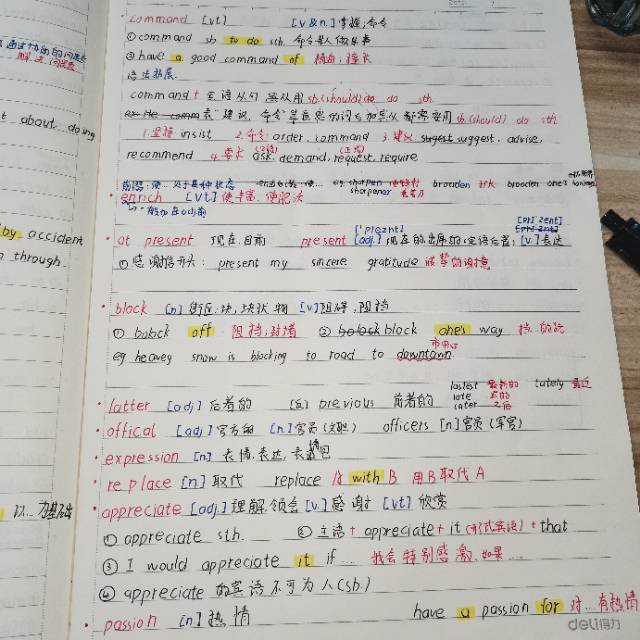 command [vt] [v&n.] 掌握;命令
①command sb to do sth 命令某人做某事
②have a good command of 精通;擅长
语法拓展.
command+宾语从句 宾从用sb.(should) do sth
表"建议,命令"等 sb(should) do sth
1.坚持 insist 2.命令 order, command 3.建议 suggest, advise,
recommend 4.要求 ask, demand, request, require
enrich [vt] 使丰富.使肥沃
broaden 扩大 broaden one's horizons
by accident
through.
about doing
at present 现在.目前 present [adj.] 现在的出席的定语后置; [v.] 表达
①感谢信开头: present my sincere gratitude 诚挚的谢意
block [n] 街区.块,块状物 [v]阻碍,阻挡
①bobck off 阻挡,封堵 ② block one's way 挡..的路
eg heavey snow is blocking to road to downtown 市中心
latter [adj] 后者的 (反) previous 前者的
lastest 最新的 lately 最近
late
later 之后
offical [adj] 官方的 [n]官员(文职) officers [n]官员(军官)
expression [n] 表情.表达,表情包
replace [n] 取代 replace A with B 用B取代A
appreciate [adj.] 理解.领会 [v.] 感谢 [vt] 欣赏
以...为基础
① appreciate sth. ② 主语+appreciate+it (形式宾语)+that
③ I would appreciate it if ... 我会特别感激.如果...
④ appreciate 的宾语不可为人(sb.)
passion [n] 热情 have a passion for 对...有热情
deli得力